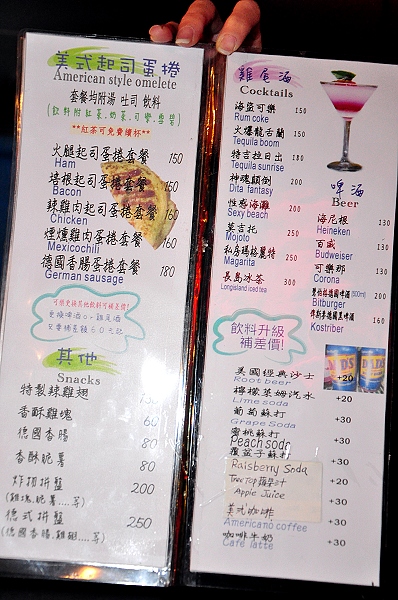 美式起司蛋捲
American style omelete
套餐均附湯 吐司 飲料
(飲料附紅茶.奶茶.可樂.雪碧)
**紅茶可免費續杯**
火腿起司蛋捲套餐 150
Ham
培根起司蛋捲套餐 150
Bacon
辣雞肉起司蛋捲套餐 150
Chicken
煙燻雞肉蛋捲套餐 160
Mexicochill
德國香腸蛋捲套餐 180
German sausage
可用更換其他飲料可補差價!
兌換啤酒or雞尾酒
只要補差額60元起
其他
Snacks
特製辣雞翅
香酥雞塊 60
德國香腸 80
香酥脆薯 80
炸物拼盤 200
(雞塊.脆薯....等)
德式拼盤 250
(德國香腸.雞翅....等)
雞尾酒
Cocktails
海盜可樂 150
Rum coke
火爆龍舌蘭 150
Tequila boom
特吉拉日出 180
Tequila sunrise
神魂顛倒 200
Dita fantasy
性感海灘 200
Sexy beach
莫吉托
Mojoto
瑪格麗特
Maganta
長島冰茶
Longisland iced tea
啤酒
Beer
海尼根
Heineken
百威
Budweiser
可樂那
Corona
德國啤酒 (500ml) 200
Bitburger
德國黑啤酒 200
Kostriber
飲料升級
補差價!
美國經典沙士 +20
Root beer
檸檬萊姆汽水 +20
Lime soda
葡萄蘇打 +30
Grape Soda
蜜桃蘇打 +30
Peach soda
覆盆子蘇打 +30
Raisberry Soda
TreeTop蘋果汁 +30
Apple Juice
美式咖啡 +30
Americano coffee
咖啡牛奶 +30
Cafe latte